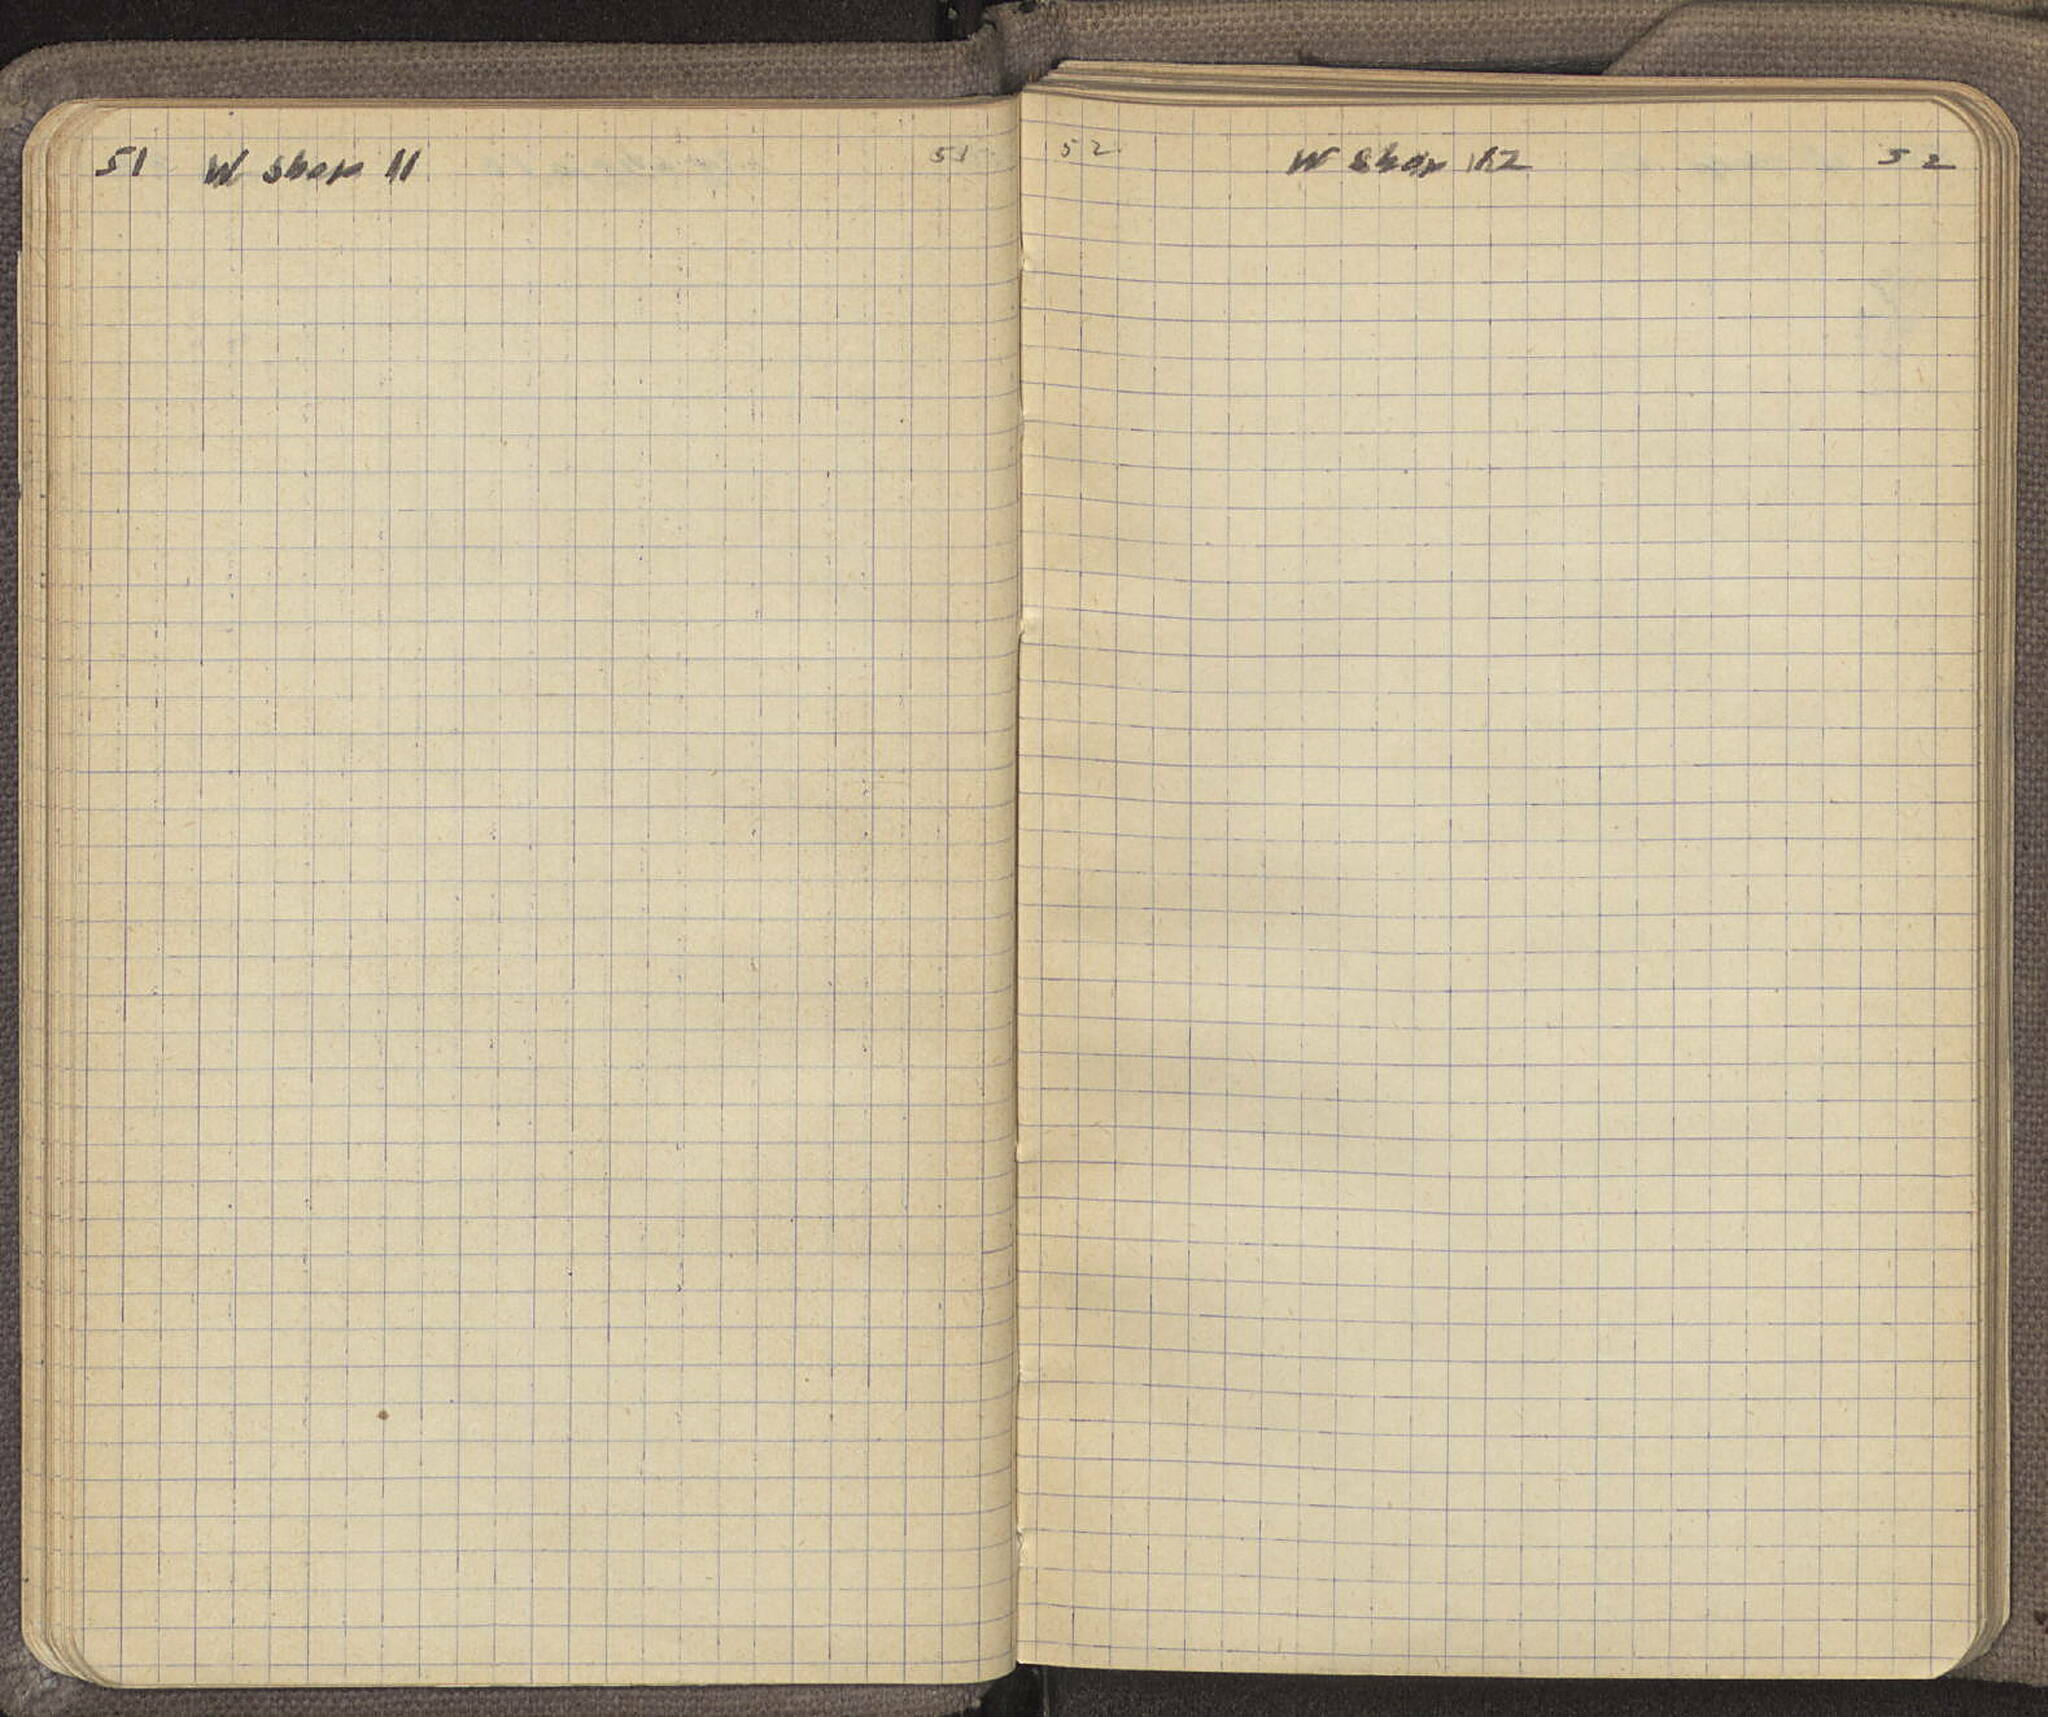 51 W Shop 11 51
52 W Shop 12 52